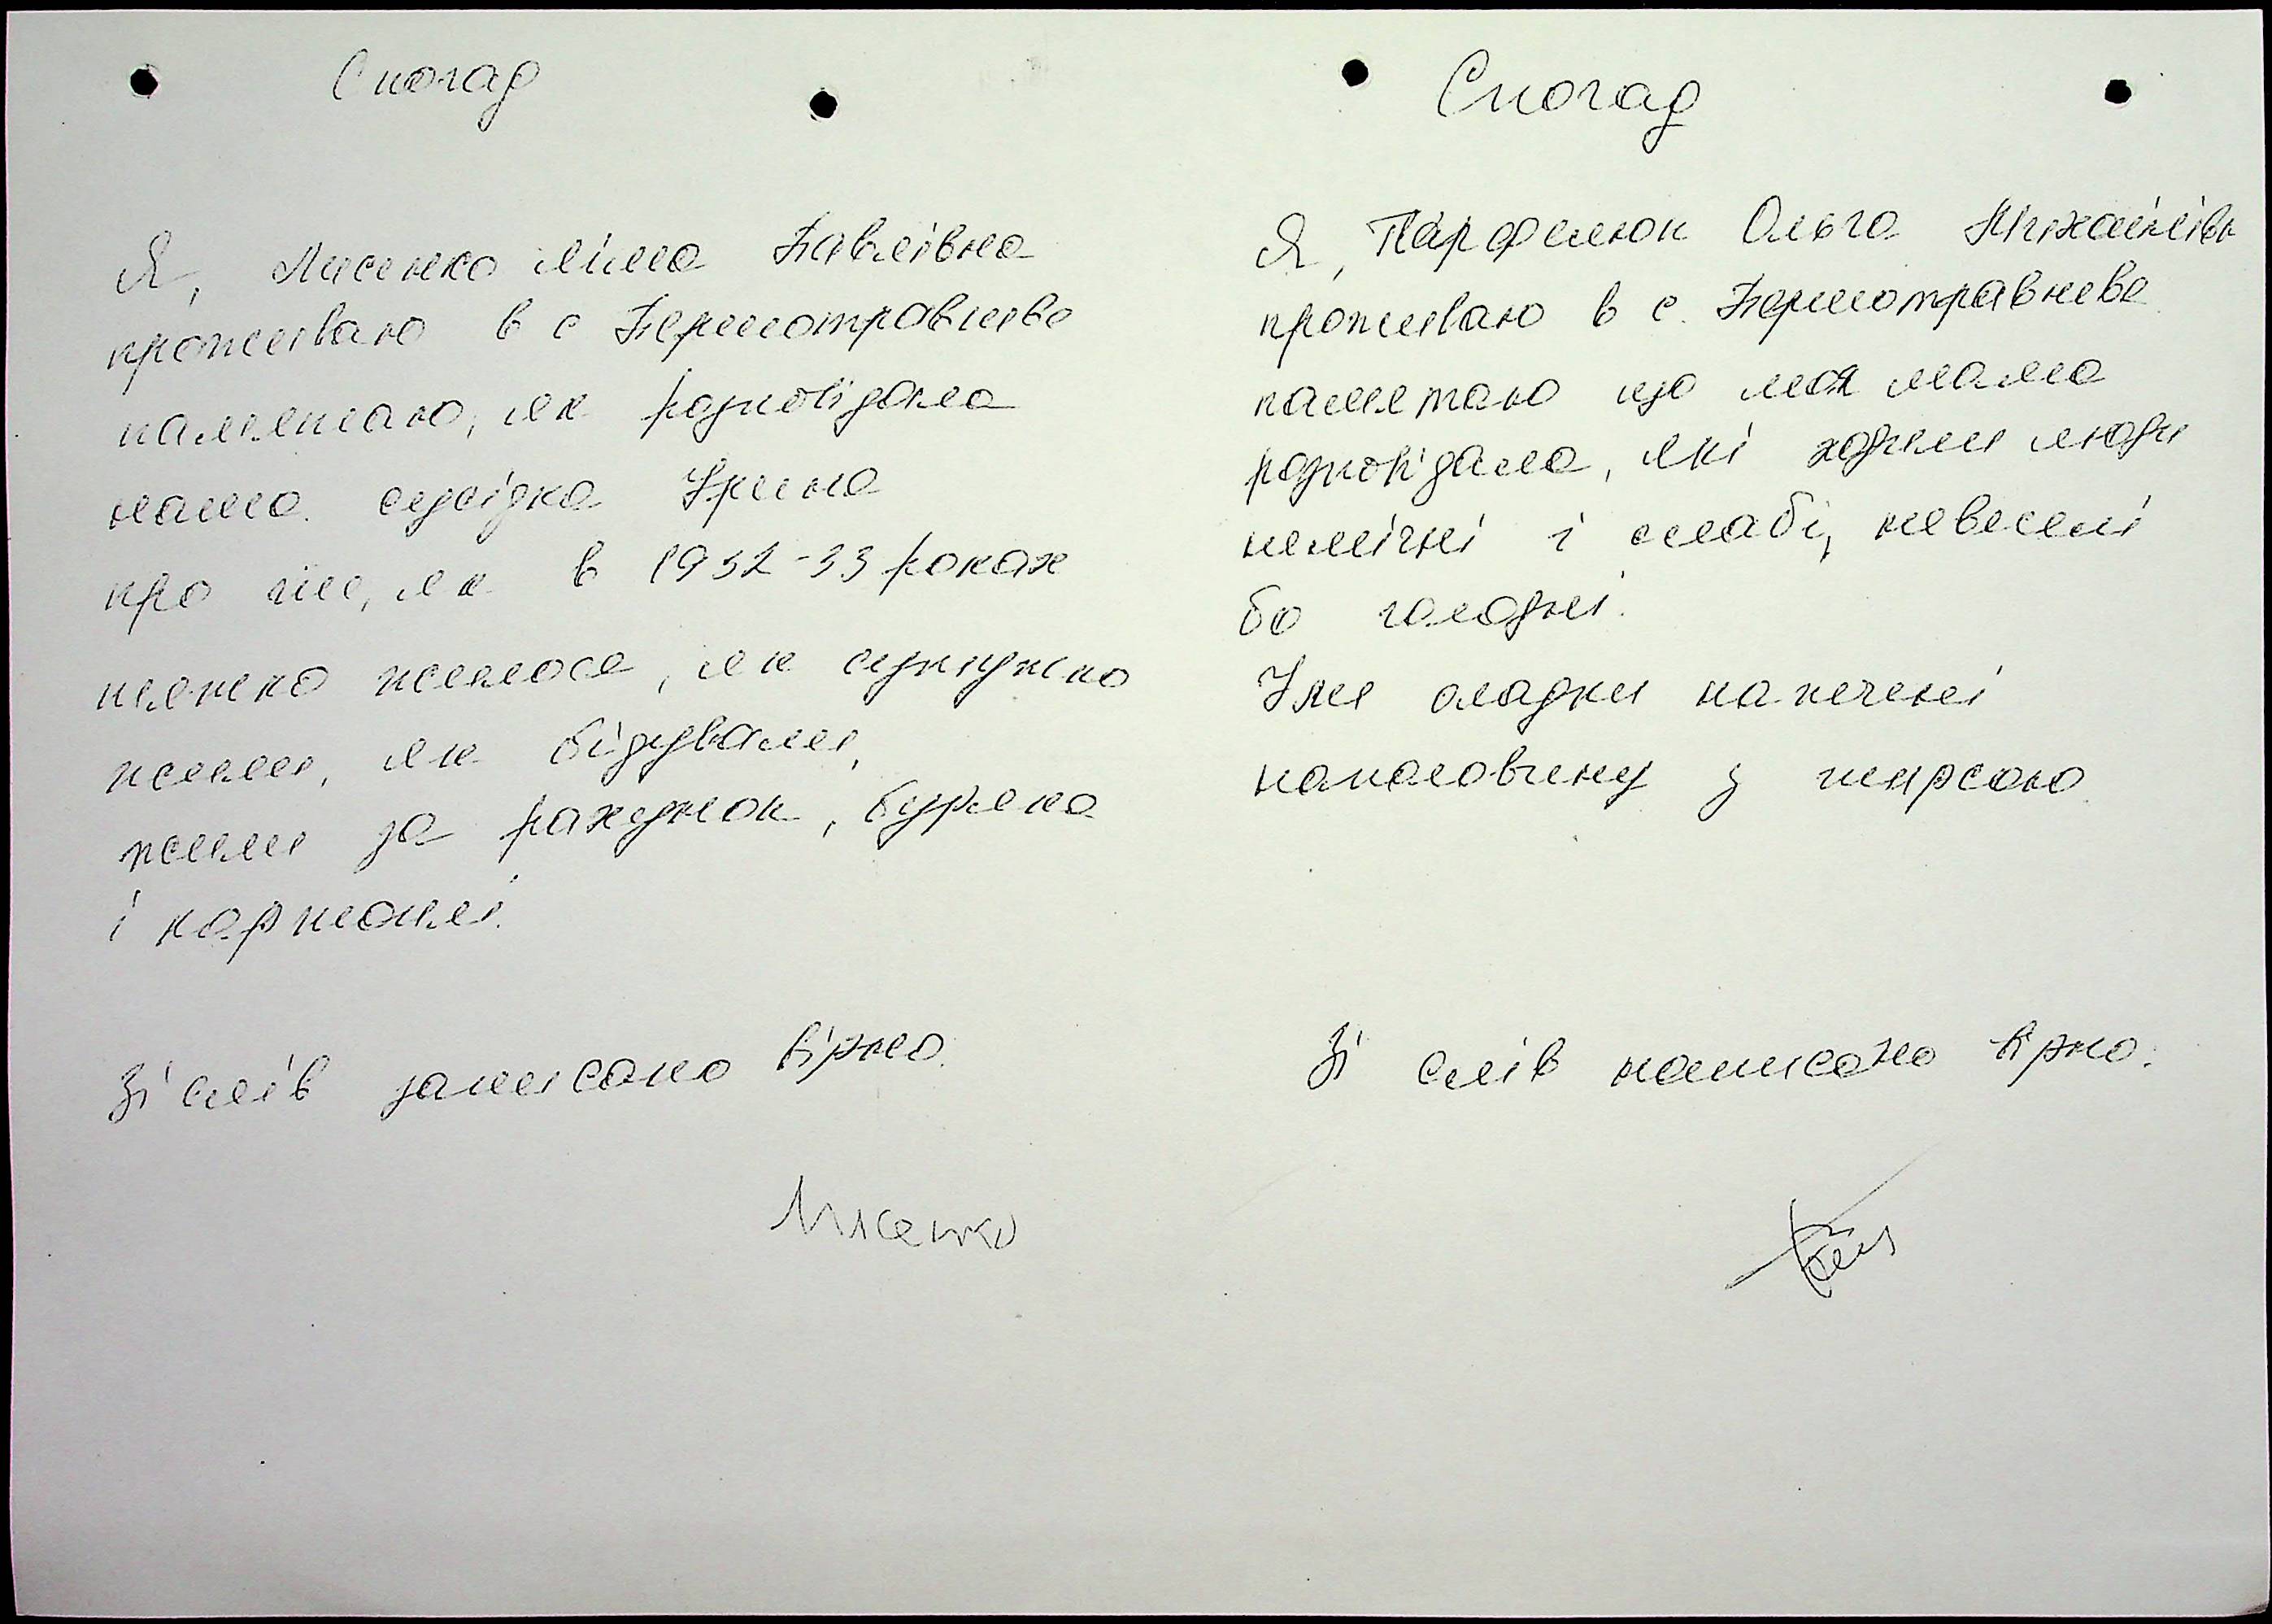 Спогад
Я, Лисенко Ліма Павлівна
проживаю в с Першотравневе
памятаю, як розповідала
наша сусідка Ірина
про те, як в 1932-33 роках
тяжко жилося, як сутужно
жили, як бідували,
жили за рахунок, буряка
і картоплі.
Зі слів записано вірно.
Лисенко
Спогад
Я, Парфенюк Ольга Михайлівн
проживаю в с. Першотравневе
памятаю що моя мама
розповідала, які ходили люди
немічні і слабі, невеселі
бо голодні.
Їли оладки напечені
наполовину з тирсою
Зі слів написано вірно.